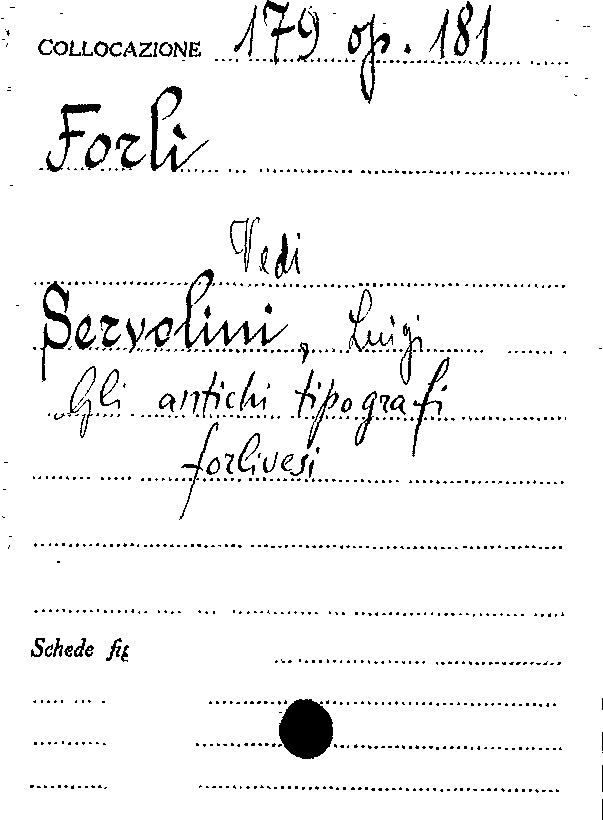 COLLOCAZIONE 179 op. 181
Forlì
Vedi
Servolini, Luigi
Gli antichi tipografi
forlivesi
Schede fig